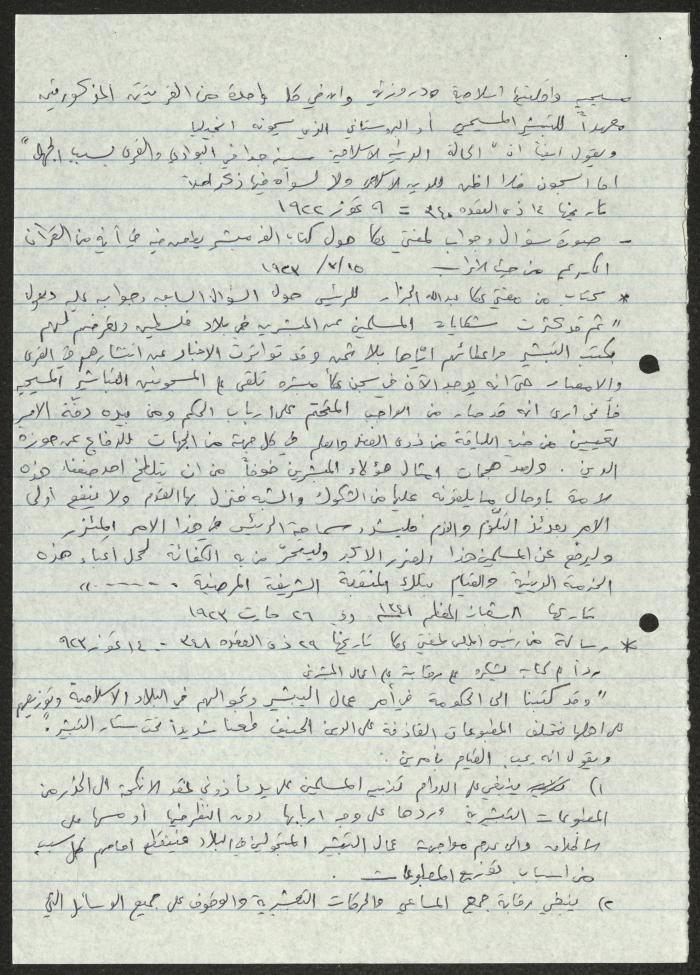 مسيحيه واقليتها اسلامية ودروزية وان في كل واحدة من القريتين المذكورتين
معهداً للتبشير المسيحي أو البروستاني الذي يسمونه انجيليا
ويقول ايضاً ان "الحالة الدينية الاسلامية سيئة جداً في البوادي والقرى بسبب الجهل"
اما السجون فلا اظهر للدين الاسلامي ولا لسواه فيها ذكر لهدا
تاريخها ١٤ ذي القعده ٣٤٠ = ٩ تموز ١٩٢٢
- صورة سؤال وجواب لمفتي عكا حول كتاب الفه مبشر يطعن فيه في آي من القرآن
الكريم من حيث الاعراب ١٥/٣/١٩٢٣
* كتاب من مفتي عكا عبدالله الجزار للرئيس حول السؤال السابق وجواب عليه ويقول
"ثم قد كثرت شكايات المسلمين من المبشرين في بلاد فلسطين وتعرضهم لهم
بكتب التبشير واعطائهم اياها بلا ثمن وقد تواترت الاخبار عن انتشارهم في القرى
والامصار حتى انه يوجد الآن في سجن عكا مبشره تلقي على المسجونين التباشير المسيحيه
فأني ارى انه قد صار من الواجب المتحتم على ارباب الحكم ومن بيده دفة الامور
تعيين من فيه اللياقة من ذوي الفضل والعلم في كل جهة من الجهات للدفاع عن حوزة
الدين . ولصد هجمات امثال هؤلاء المبشرين خوفاً من ان يتلطخ احد ضعفاء هذه
الامة باوحال ما يلقونه عليها من الشكوك والشبه فتزل بها القدم ولا ينفع أولى
الامر بعدئذ التلوّم والندم فليشدد سماحة الرئيس في هذا الامر المئزر
وليرفع عن المسلمين هذا الضرر الاكبر وليتحرّ من به الكفائة لحمل اعباء هذه
الخدمة الدينية والقيام بتلك المنقبة الشريفة المرضية ......"
تاريخها ٨ شعبان المعظم ١٣٤١ و ٢٦ مارت ١٩٢٣
* رسالة من رئيس المجلس لمفتي عكا تاريخها ٢٩ ذي القعده ٣٤١ - ١٤ تموز ٩٢٣
رداً على كتاب يشكره على رقابة على اعمال المبشرين
"وقد كتبنا الى الحكومة في أمر عمال التبشير وتجوالهم في البلاد الاسلامية وتوزيعهم
على اهلها مختلف المطبوعات القاذفة على الدين الحنيف طعنا شديداً تحت ستار التبشير".
ويقول انه يجب القيام بأمرين:
١) ينبغي على الدوام تنبيه المسلمين على يد مأذوني عقد الانكحة الى الحذر من
المطبوعات التبشيرية وردها على وجه اربابها دون النظر فيها أو مسها على
الاطلاق والى عدم مواجهة عمال التبشير المتجولين في البلاد فتنقطع امامهم كل سبب
من اسباب توزيع المطبوعات .
٢) ينبغي رقابة جميع المساعي والحركات التبشيرية والوقوف على جميع الوسائل التي